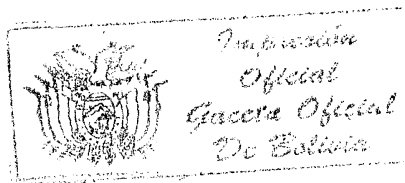 Impresión
Oficial
Gaceta Oficial
De Bolivia